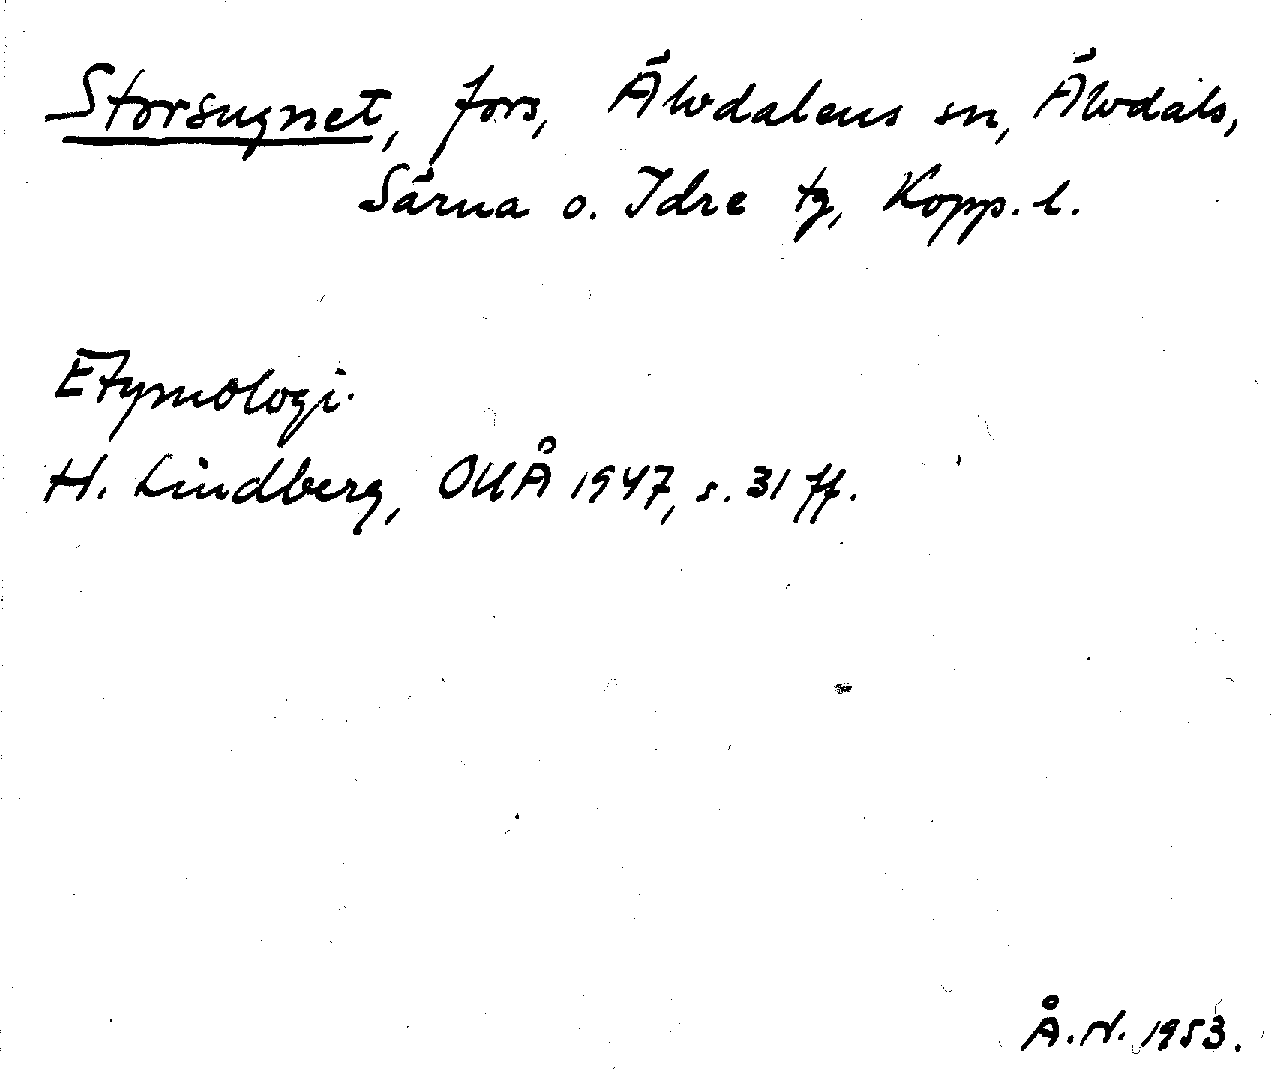 Storsugnet, fors, Älvdalens sn, Älvdals,
Särna o. Idre tg, Kopp. l.
Etymologi.
H. Lindberg, OUÅ 1947, s. 31 ff.
Å.N. 1953.